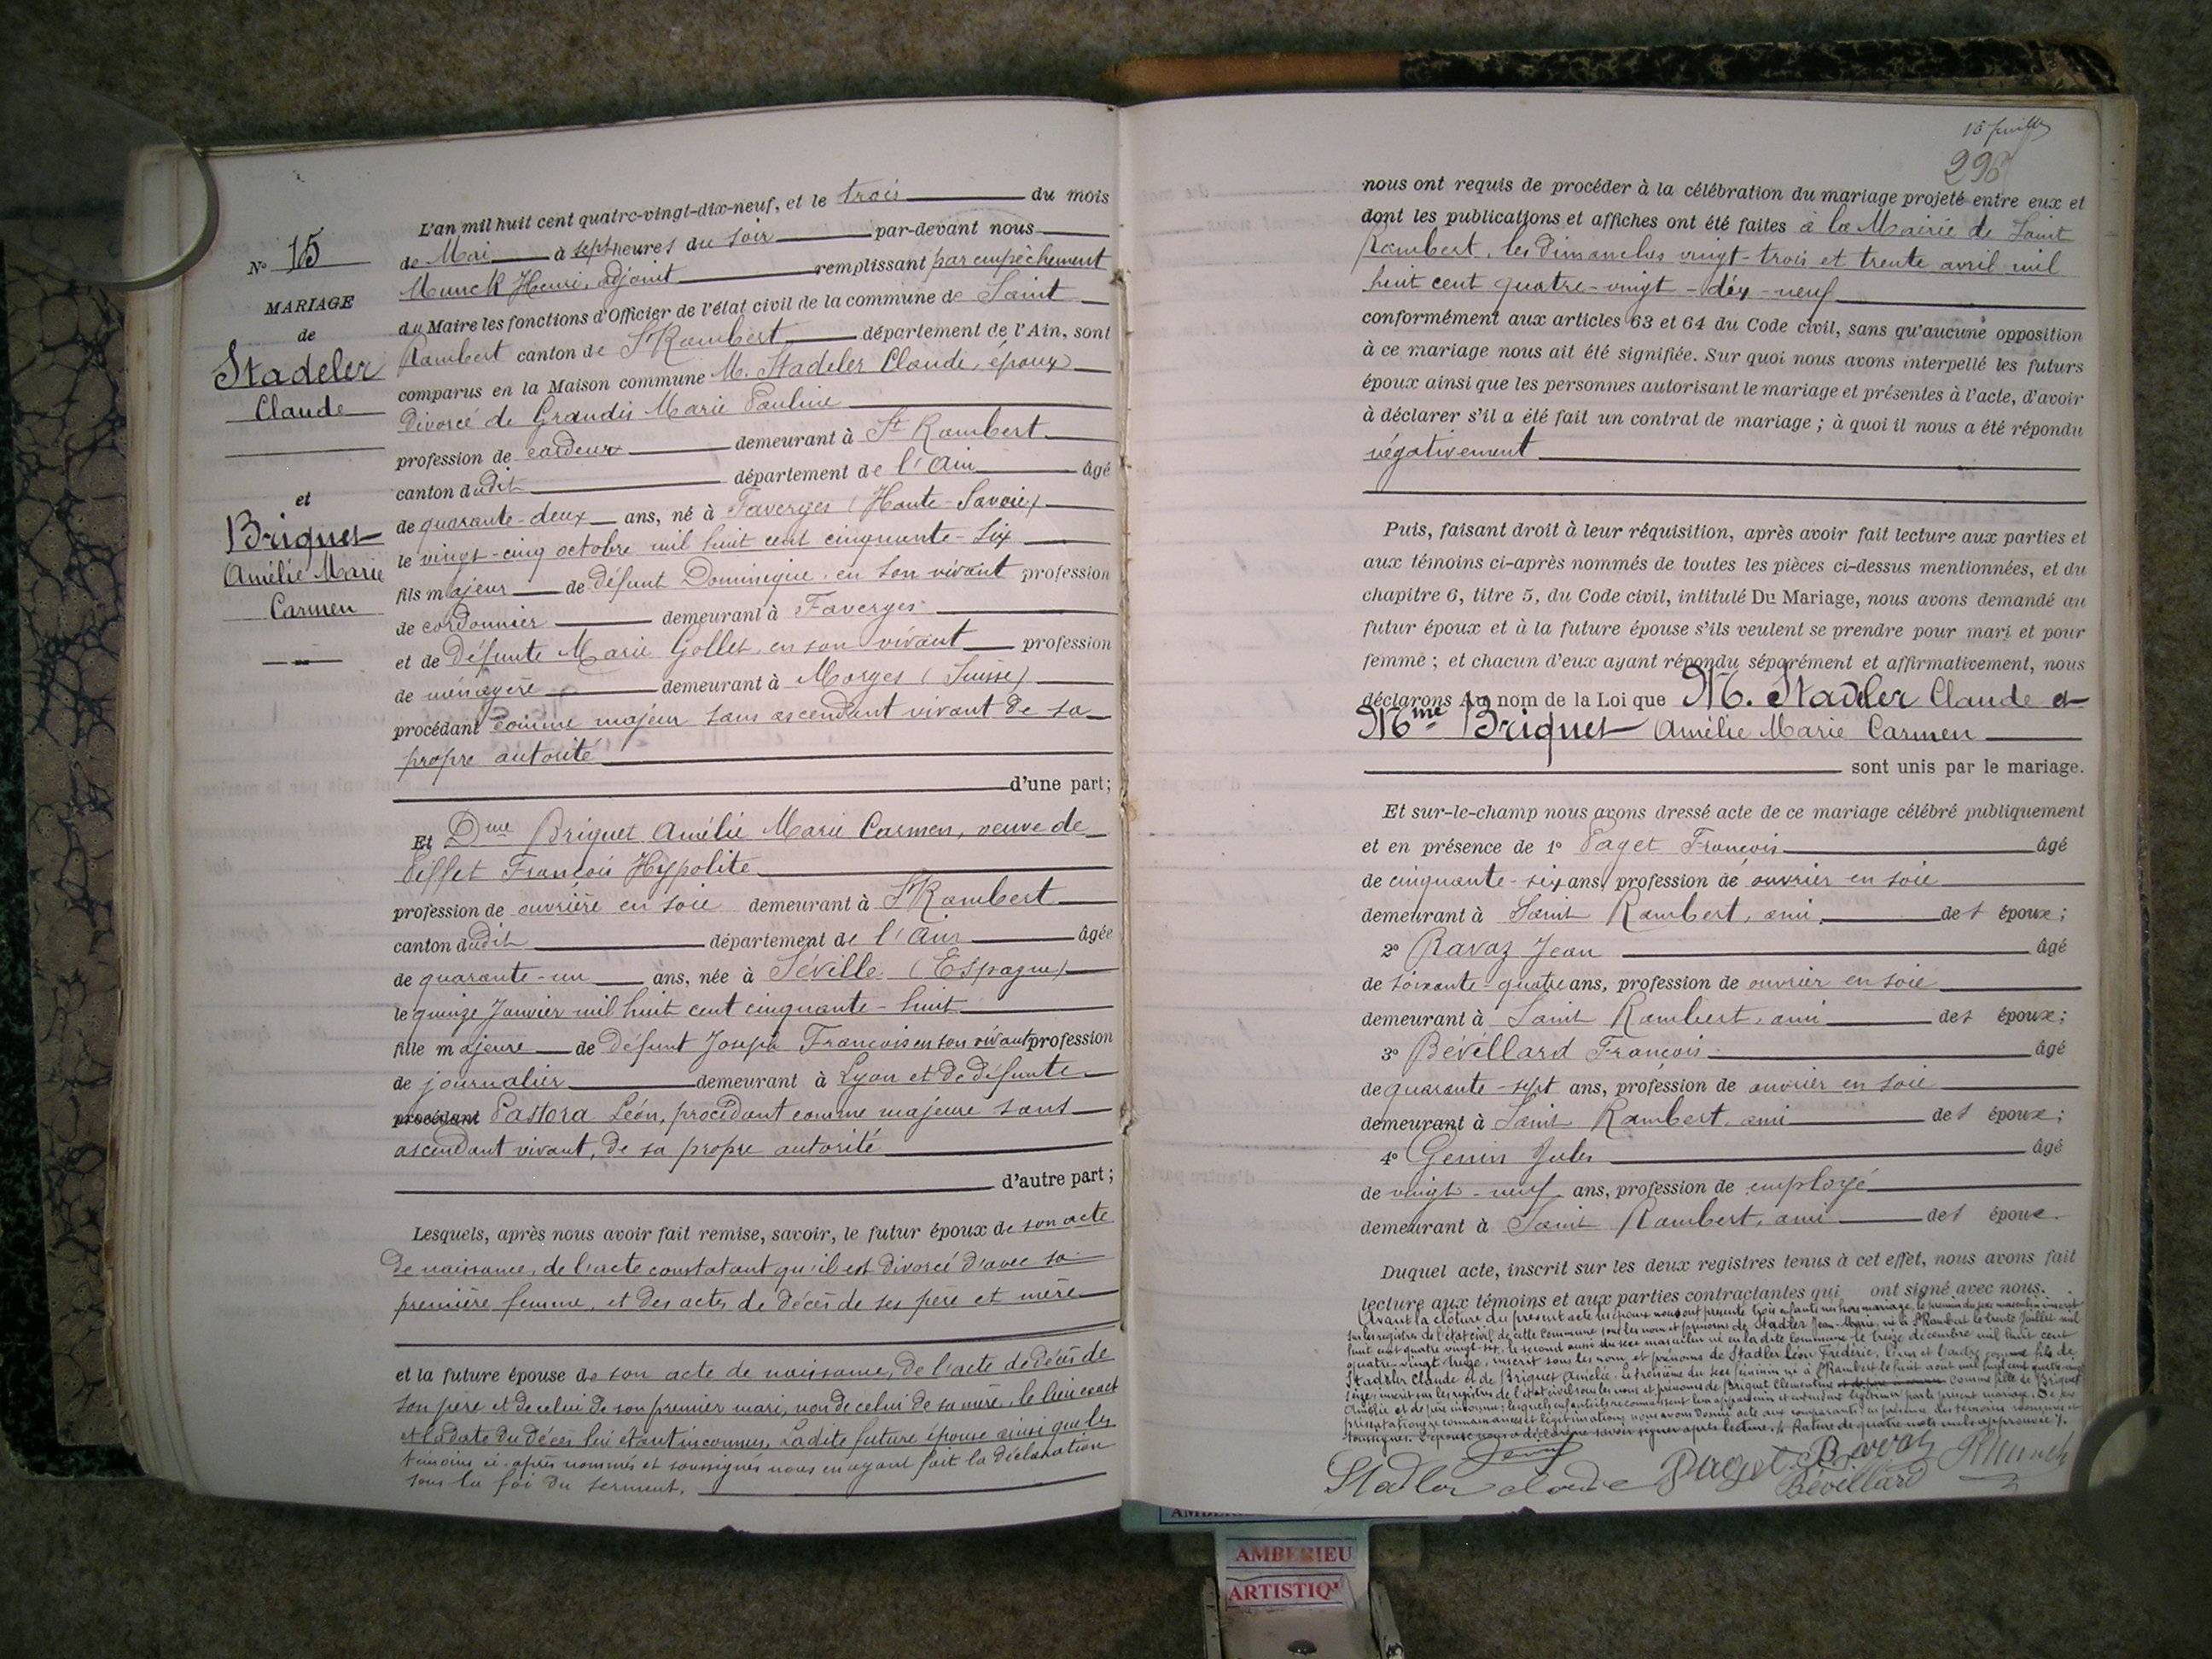 N° 15
MARIAGE
de
Stadeler
Claude
et
Briquet
Amélie Marie
Carmen
L'an mil huit cent quatre-vingt-dix-neuf, et le trois du mois
de Mai à sept heures du soir par-devant nous
Munck Henri, adjoint remplissant par empêchement
du Maire les fonctions d'Officier de l'état civil de la commune de Saint
Rambert canton de St Rambert département de l'Ain, sont
comparus en la Maison commune M. Stadeler Claude, époux
divorcé de Grandis Marie Pauline
profession de cardeur demeurant à St Rambert
canton dudit département de l'Ain âgé
de quarante-deux ans, né à Faverges (Haute-Savoie)
le vingt-cinq octobre mil huit cent cinquante-six
fils majeur de défunt Dominique en son vivant profession
de cordonnier demeurant à Faverges
et de défunte Marie Gollet, en son vivant profession
de ménagère demeurant à Morges (Suisse)
procédant comme majeur sans ascendant vivant de sa
propre autorité
d'une part;
Et Dme Briquet Amélie Marie Carmen, veuve de
Piffet François Hypolite
profession de ouvrière en soie demeurant à St Rambert
canton dudit département de l'Ain âgée
de quarante-un ans, née à Séville (Espagne)
le quinze Janvier mil huit cent cinquante-huit
fille majeure de défunt Joseph François en son vivant profession
de journalier demeurant à Lyon et de défunte
procédant Pastora Léon, procédant comme majeure sans
ascendant vivant, de sa propre autorité
d'autre part;
Lesquels, après nous avoir fait remise, savoir, le futur époux de son acte
de naissance, de l'acte constatant qu'il est divorcé d'avec sa
première femme, et des actes de décès de ses père et mère
et la future épouse de son acte de naissance, de l'acte de décès de
son père et de celui de son premier mari, non de celui de sa mère, le lieu exact
et la date du décès lui étant inconnus, Ladite future épouse ainsi que les
témoins ci-après nommés et soussignés nous en ayant fait la déclaration
sous la foi du serment.
15 feuillet
296
nous ont requis de procéder à la célébration du mariage projeté entre eux et
dont les publications et affiches ont été faites à la Mairie de Saint
Rambert, les Dimanches vingt-trois et trente avril mil
huit cent quatre-vingt-dix-neuf
conformément aux articles 63 et 64 du Code civil, sans qu'aucune opposition
à ce mariage nous ait été signifiée. Sur quoi nous avons interpellé les futurs
époux ainsi que les personnes autorisant le mariage et présentes à l'acte, d'avoir
à déclarer s'il a été fait un contrat de mariage; à quoi il nous a été répondu
négativement
Puis, faisant droit à leur réquisition, après avoir fait lecture aux parties et
aux témoins ci-après nommés de toutes les pièces ci-dessus mentionnées, et du
chapitre 6, titre 5, du Code civil, intitulé Du Mariage, nous avons demandé au
futur époux et à la future épouse s'ils veulent se prendre pour mari et pour
femme; et chacun d'eux ayant répondu séparément et affirmativement, nous
déclarons Au nom de la Loi que M. Stadler Claude et
Mme Briquet Amélie Marie Carmen
sont unis par le mariage.
Et sur-le-champ nous avons dressé acte de ce mariage célébré publiquement
et en présence de 1° Paget François âgé
de cinquante-six ans, profession de ouvrier en soie
demeurant à Saint Rambert, ami des époux;
2° Ravaz Jean âgé
de soixante-quatre ans, profession de ouvrier en soie
demeurant à Saint Rambert, ami des époux;
3° Bévillard François âgé
de quarante-sept ans, profession de ouvrier en soie
demeurant à Saint Rambert, ami des époux;
4° Genin Jules âgé
de vingt-neuf ans, profession de employé
demeurant à Saint Rambert, ami des époux.
Duquel acte, inscrit sur les deux registres tenus à cet effet, nous avons fait
lecture aux témoins et aux parties contractantes qui ont signé avec nous.
Avant la clôture du présent acte les époux nous ont présenté trois enfants nés hors mariage, le premier du sexe masculin inscrit
sur les registres de l'état civil de cette Commune sous les nom et prénoms de Stadler Jean-Marie, né à St Rambert le trente Juillet mil
huit cent quatre vingt-six, le second aussi du sexe masculin né en ladite commune le treize décembre mil huit cent
quatre-vingt-treize, inscrit sous les nom et prénoms de Stadler Léon Frédéric, l'un et l'autre comme fils de
Stadler Claude et de Briquet Amélie. Le troisième du sexe féminin né à St Rambert le huit août mil huit cent quatre-vingt
seize, inscrit sur les registres de l'état civil sous les nom et prénoms de Briquet Clémentine comme fille de Briquet
Amélie et de père inconnu; lesquels enfants ils reconnaissent leur appartenir et entendent légitimer par le présent mariage. De ces
présentations, reconnaissances et légitimations nous avons donné acte aux comparants en présence des témoins nommés et
soussignés. L'épouse nous a déclaré ne savoir signer après lecture. Rature de quatre mots nuls approuvée.
Genin
Stadler Claude Paget Ravaz HMunck
Bévillard
AMBERIEU
ARTISTIQ